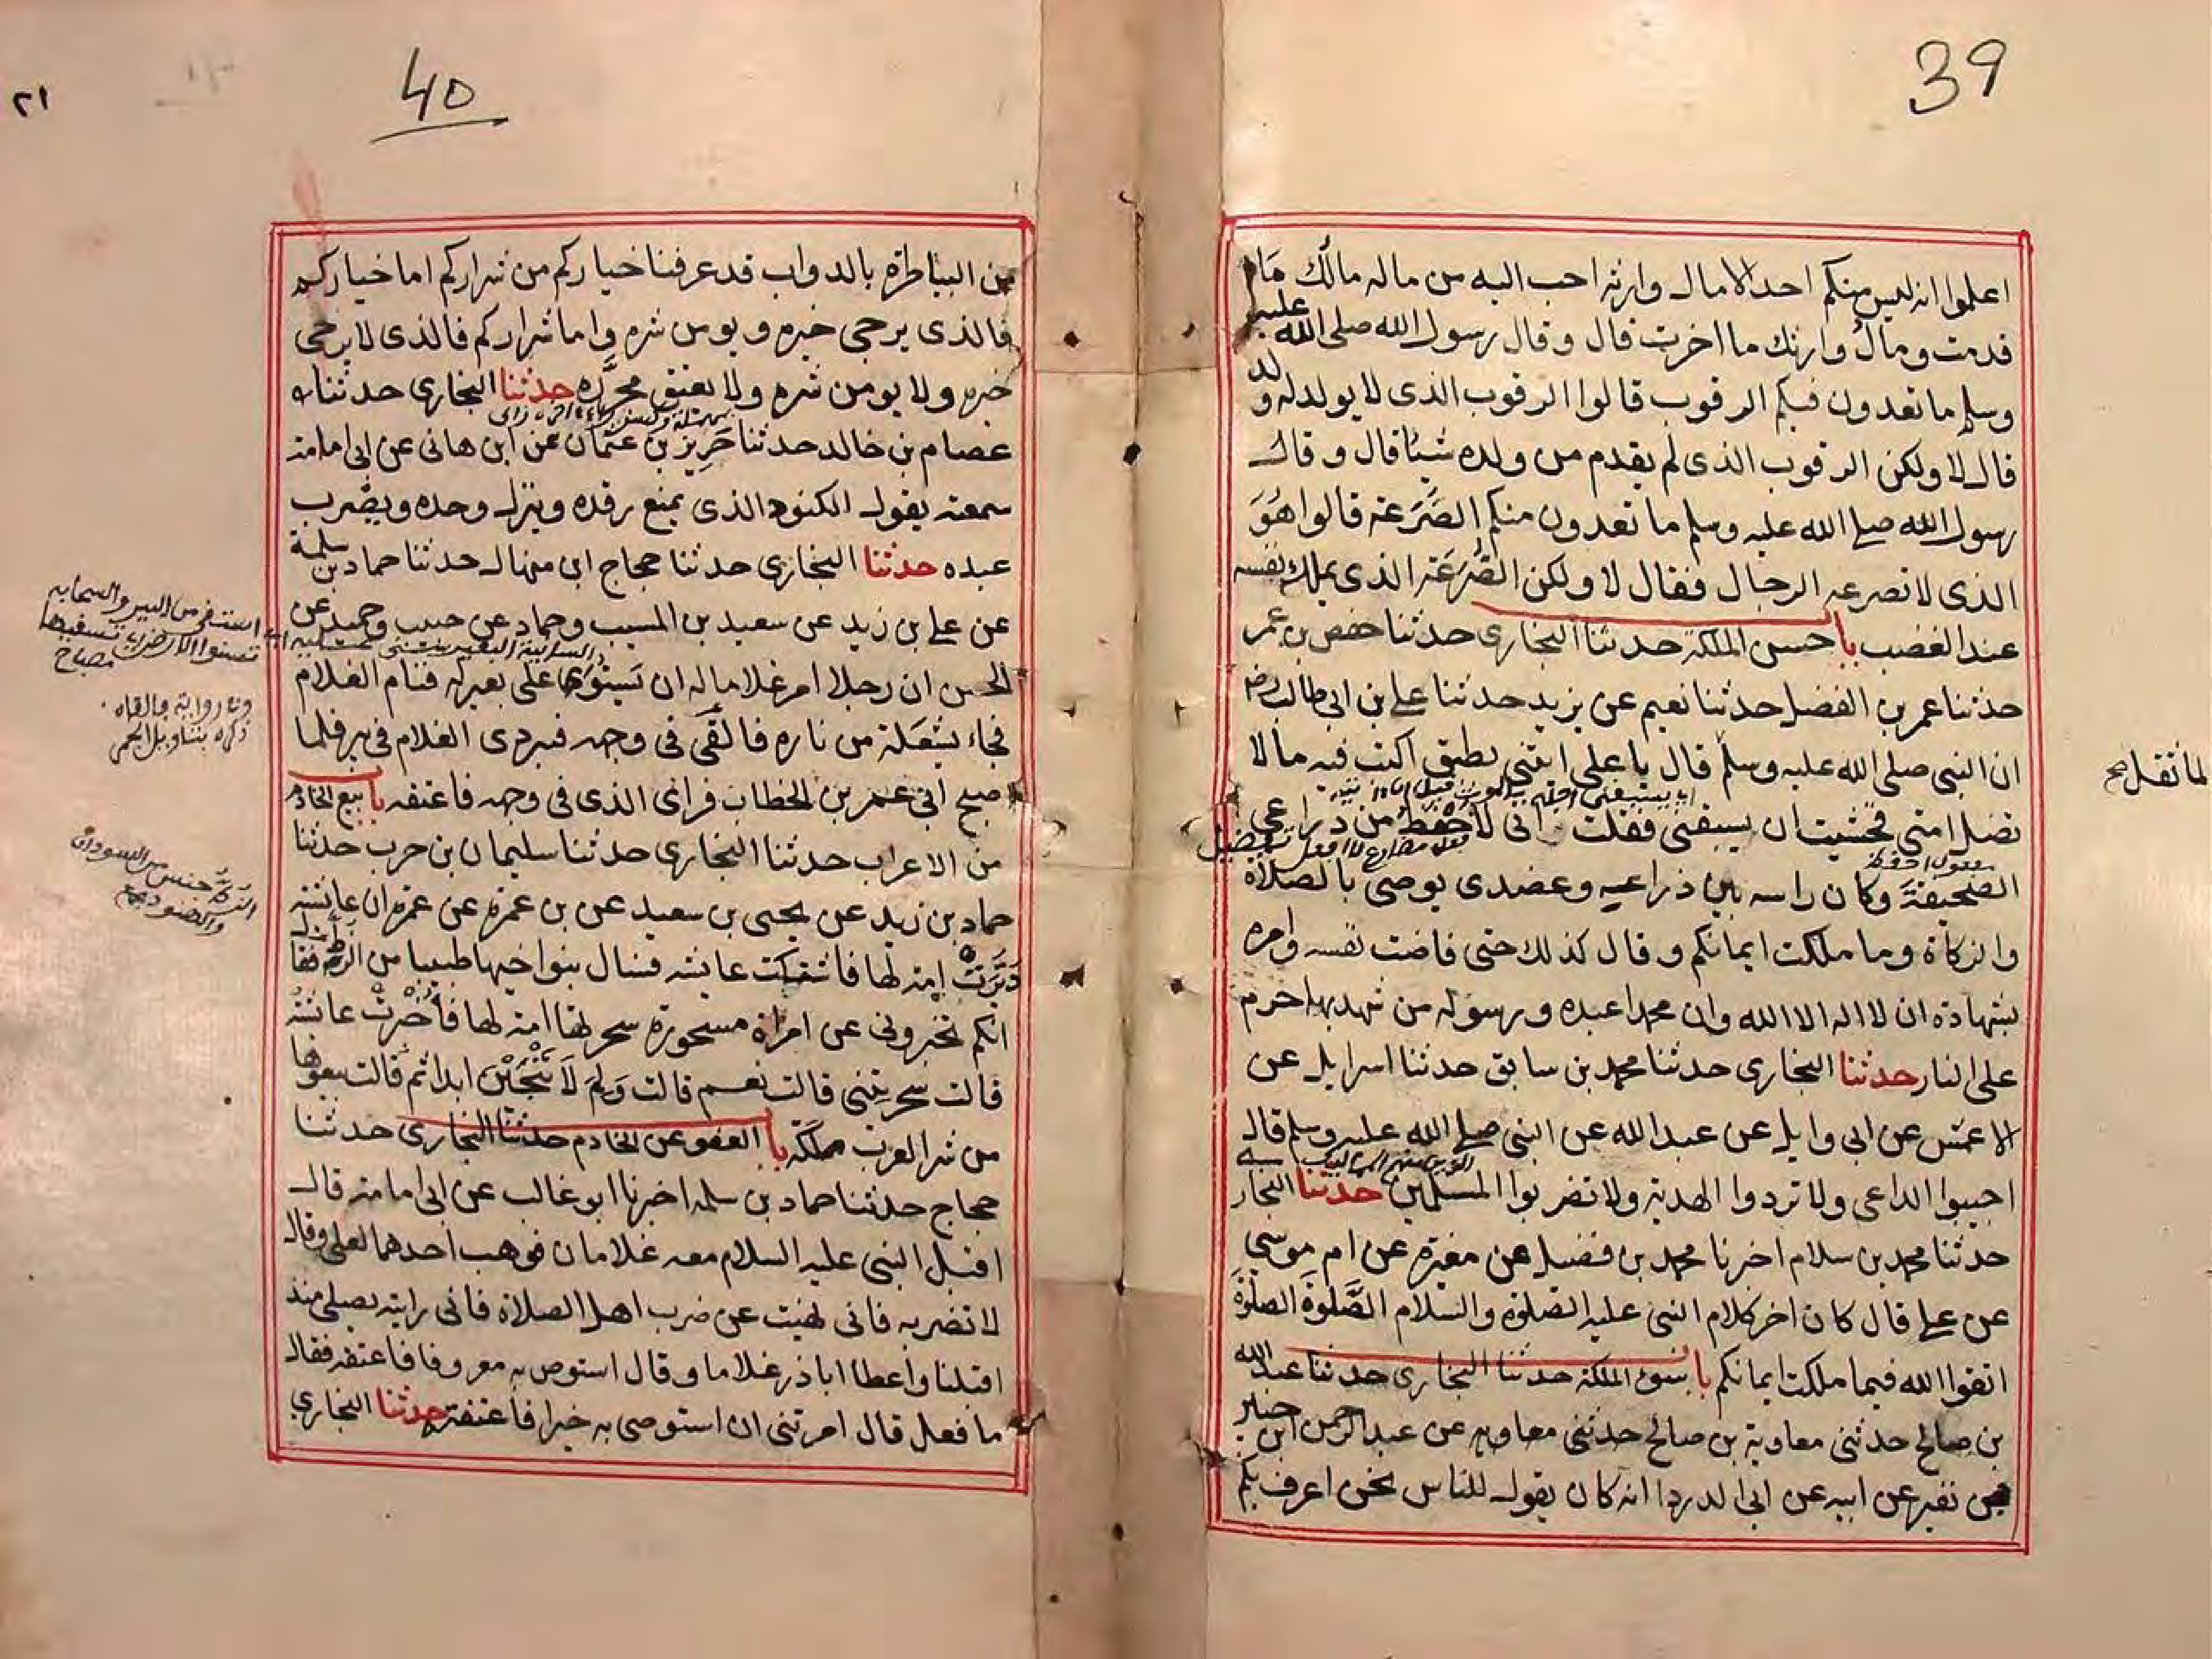 39
اعلموا انه ليس منكم احد الا مال وارثه احب اليه من ماله مالك ما
قدمت ومال وارثك ما اخرت قال وقال رسول الله صلى الله عليه
وسلم ما تعدون فيكم الرقوب قالوا الرقوب الذى لا يولد له ولد
قال لا ولكن الرقوب الذى لم يقدم من ولده شيئا قال وقال
رسول الله صلى الله عليه وسلم ما تعدون منكم الصُّرَعَة قالوا هُوَ
الذى لا تصرعه الرجال فقال لا ولكن الصُّرَعَة الذى يملك نفسه
عند الغضب با حسن الملكة حدثنا البخارى حدثنا حفص بن عمر
حدثنا عمر بن الفضل حدثنا نعيم عن يزيد حدثنا على بن ابى طالب رضى
ان النبى صلى الله عليه وسلم قال يا على ائتنى بطبق اكتب فيه ما لا
تضل امتى فخشيت ان يسبقنى فقلت انى لاحفظ من ذراعى
مفعول احفظ
الصحيفة وكان راسه بين ذراعيه وعضدى يوصى بالصلاة
والزكاة وما ملكت ايمانكم وقال كذلك حتى فاضت نفسه وامره
بشهادة ان لا اله الا الله وان محمدا عبده ورسوله من شهد بها حرم
على النار حدثنا البخارى حدثنا محمد بن سابق حدثنا اسرايل عن
الاعمش عن ابى وايل عن عبد الله عن النبى صلى الله عليه وسلم قال
اجيبوا الداعى ولا تردوا الهدية ولا تضربوا المسلمين حدثنا البخارى
حدثنا محمد بن سلام اخبرنا محمد بن فضيل عن مغيرة عن ام موسى
عن على قال كان اخر كلام النبى عليه الصلوة والسلام الصَّلوةَ الصلوةَ
اتقوا الله فيما ملكت ايمانكم با سوء الملكة حدثنا البخارى حدثنا عبد الله
بن صالح حدثنى معاوية بن صالح حدثنى معاويه عن عبد الرحمن ابن جبير
بن نفير عن ابيه عن ابى الدردا انه كان يقول للناس نحن اعرف بكم
40
٢١
من البياطرة بالدواب قد عرفنا خياركم من شراركم اما خياركم
فالذى يرجى خيره ويومن شره واما شراركم فالذى لا يرجى
خيره ولا يومن شره ولا يعتق محرَّره حدثنا البخارى حدثناه
عصام بن خالد حدثنا حَرِيز بن عثمان عن ابن هانى عن ابى امامة
سمعته يقول الكنود الذى يمنع رفده وينزل وحده ويضرب
عبده حدثنا البخارى حدثنا حجاج ابى منهال حدثنا حماد بن سلمة
عن على بن زيد عن سعيد بن المسيب وحماد عن حبيب وحميد عن
الحسن ان رجلا امر غلاما له ان يَسنوا على بعير له فنام الغلام
فجاء بشعلة من نار فالقى فى وجهه فتردى الغلام فى بير فلما
اصبح اتى عمر بن الخطاب فراى الذى فى وجهه فاعتقه با بيع الخادم
من الاعراب حدثنا البخارى حدثنا سليمان بن حرب حدثنا
حماد بن زيد عن يحيى بن سعيد عن بن عمرة عن عمرة ان عائشة
دَبَّرَتْ امة لها فاشتكت عايشه فسال بنوا خيها طبيبا من الزط فقال
انكم تخبرونى عن امراة مسحورة سحرتها امة لها فأُخْبِرَتْ عائشة
قالت سحرتينى قالت نعم قالت وَلِمَ لَا تَنْجَيْنَ ابدا ثم قالت بيعوها
من شر العرب ملكة با العفو عن الخادم حدثنا البخارى حدثنا
حجاج حدثنا حماد بن سلمه اخبرنا ابو غالب عن ابى امامة قال
اقبل النبى عليه السلام معه غلامان فوهب احدهما لعلى وقال
لا تضربه فانى نهيت عن ضرب اهل الصلاة فانى رايته يصلى منذ
اقبلنا واعطا اباذر غلاما وقال استوص به معروفا فاعتقه فقال
ما فعل قال امرتنى ان استوصى به خيرا فاعتقته حدثنا البخارى
مصباح
الزط جنس من السودان